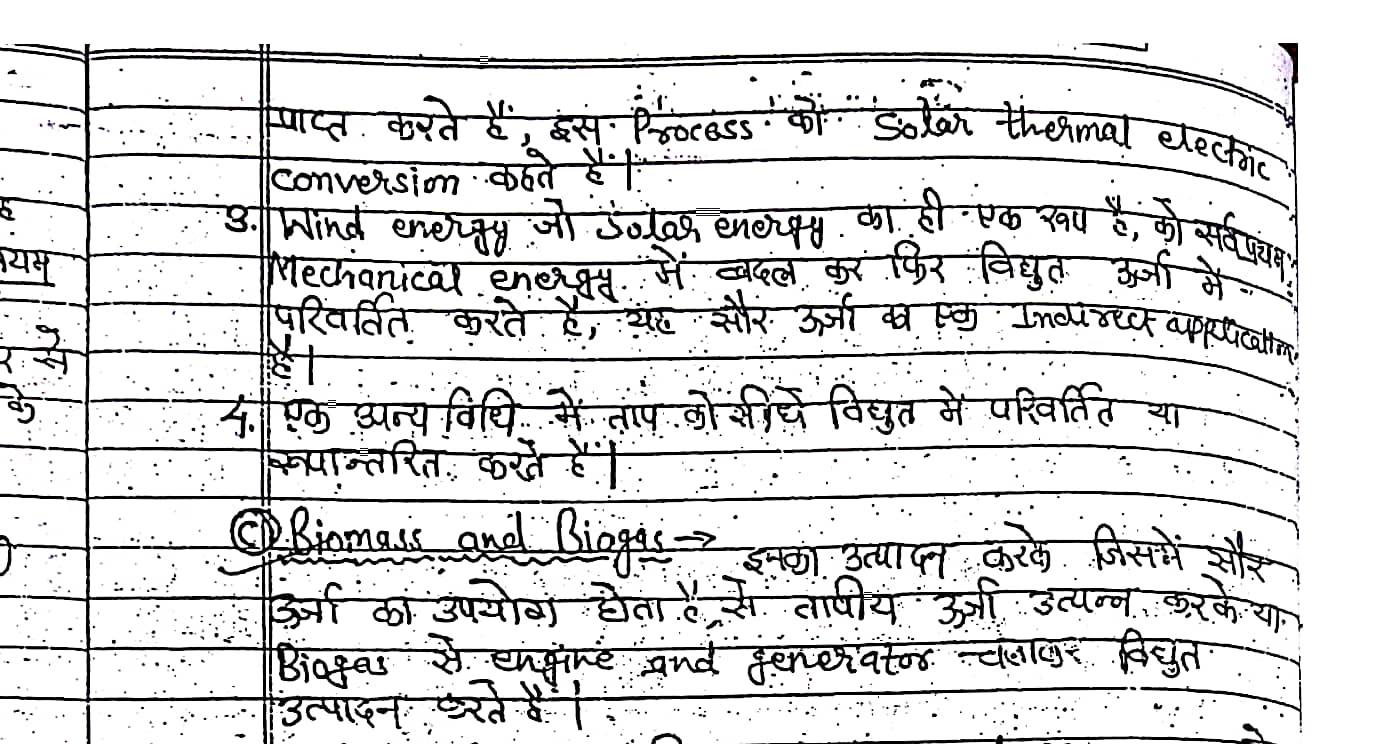 प्राप्त करते हैं, इस Process को Solar thermal electric
conversion कहते हैं।
3. Wind energy जो Solar energy का ही एक रूप है, को सर्वप्रथम
Mechanical energy में बदल कर फिर विद्युत ऊर्जा में
परिवर्तित करते है, यह सौर ऊर्जा का एक Indirect application
है।
4. एक अन्य विधि में ताप को सीधे विद्युत में परिवर्तित या
रूपान्तरित करते हैं।
(C) Biomass and Biogas → इनका उत्पादन करके जिसमें सौर
ऊर्जा का उपयोग होता है, से तापीय ऊर्जा उत्पन्न करके या
Biogas से engine and generator चलाकर विद्युत
उत्पादन करते हैं।